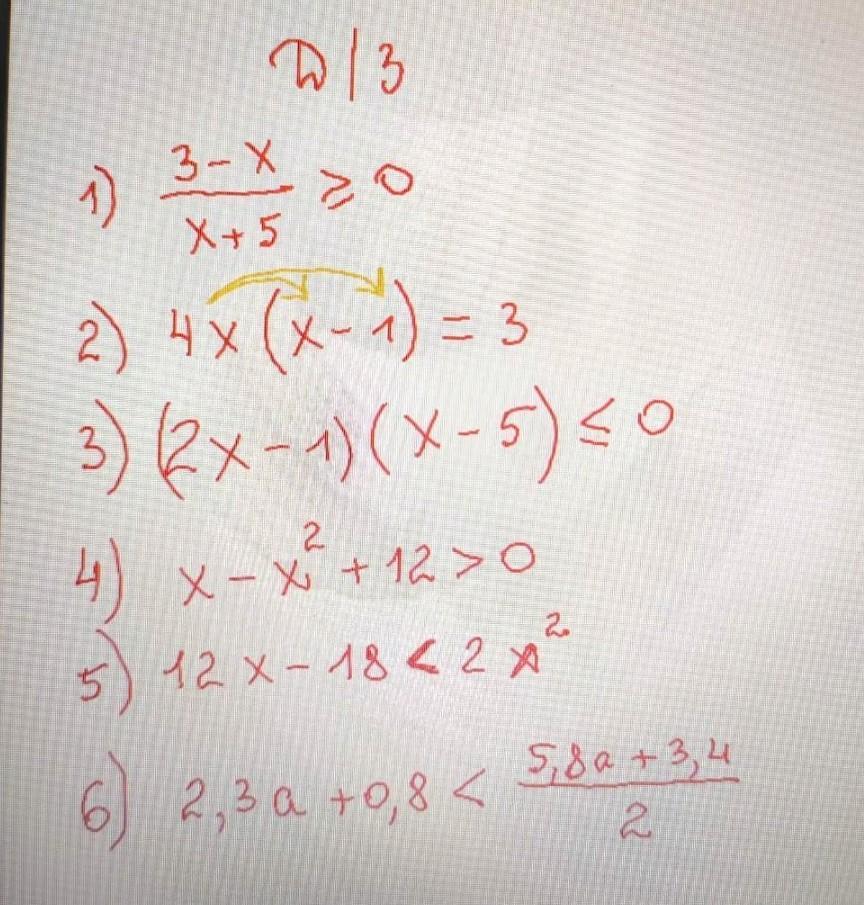 Д/З
1) (3-x)/(x+5) ≥ 0
2) 4x(x-1) = 3
3) (2x-1)(x-5) ≤ 0
4) x-x²+12 > 0
5) 12x-18 < 2x²
6) 2,3a+0,8 < (5,8a+3,4)/2